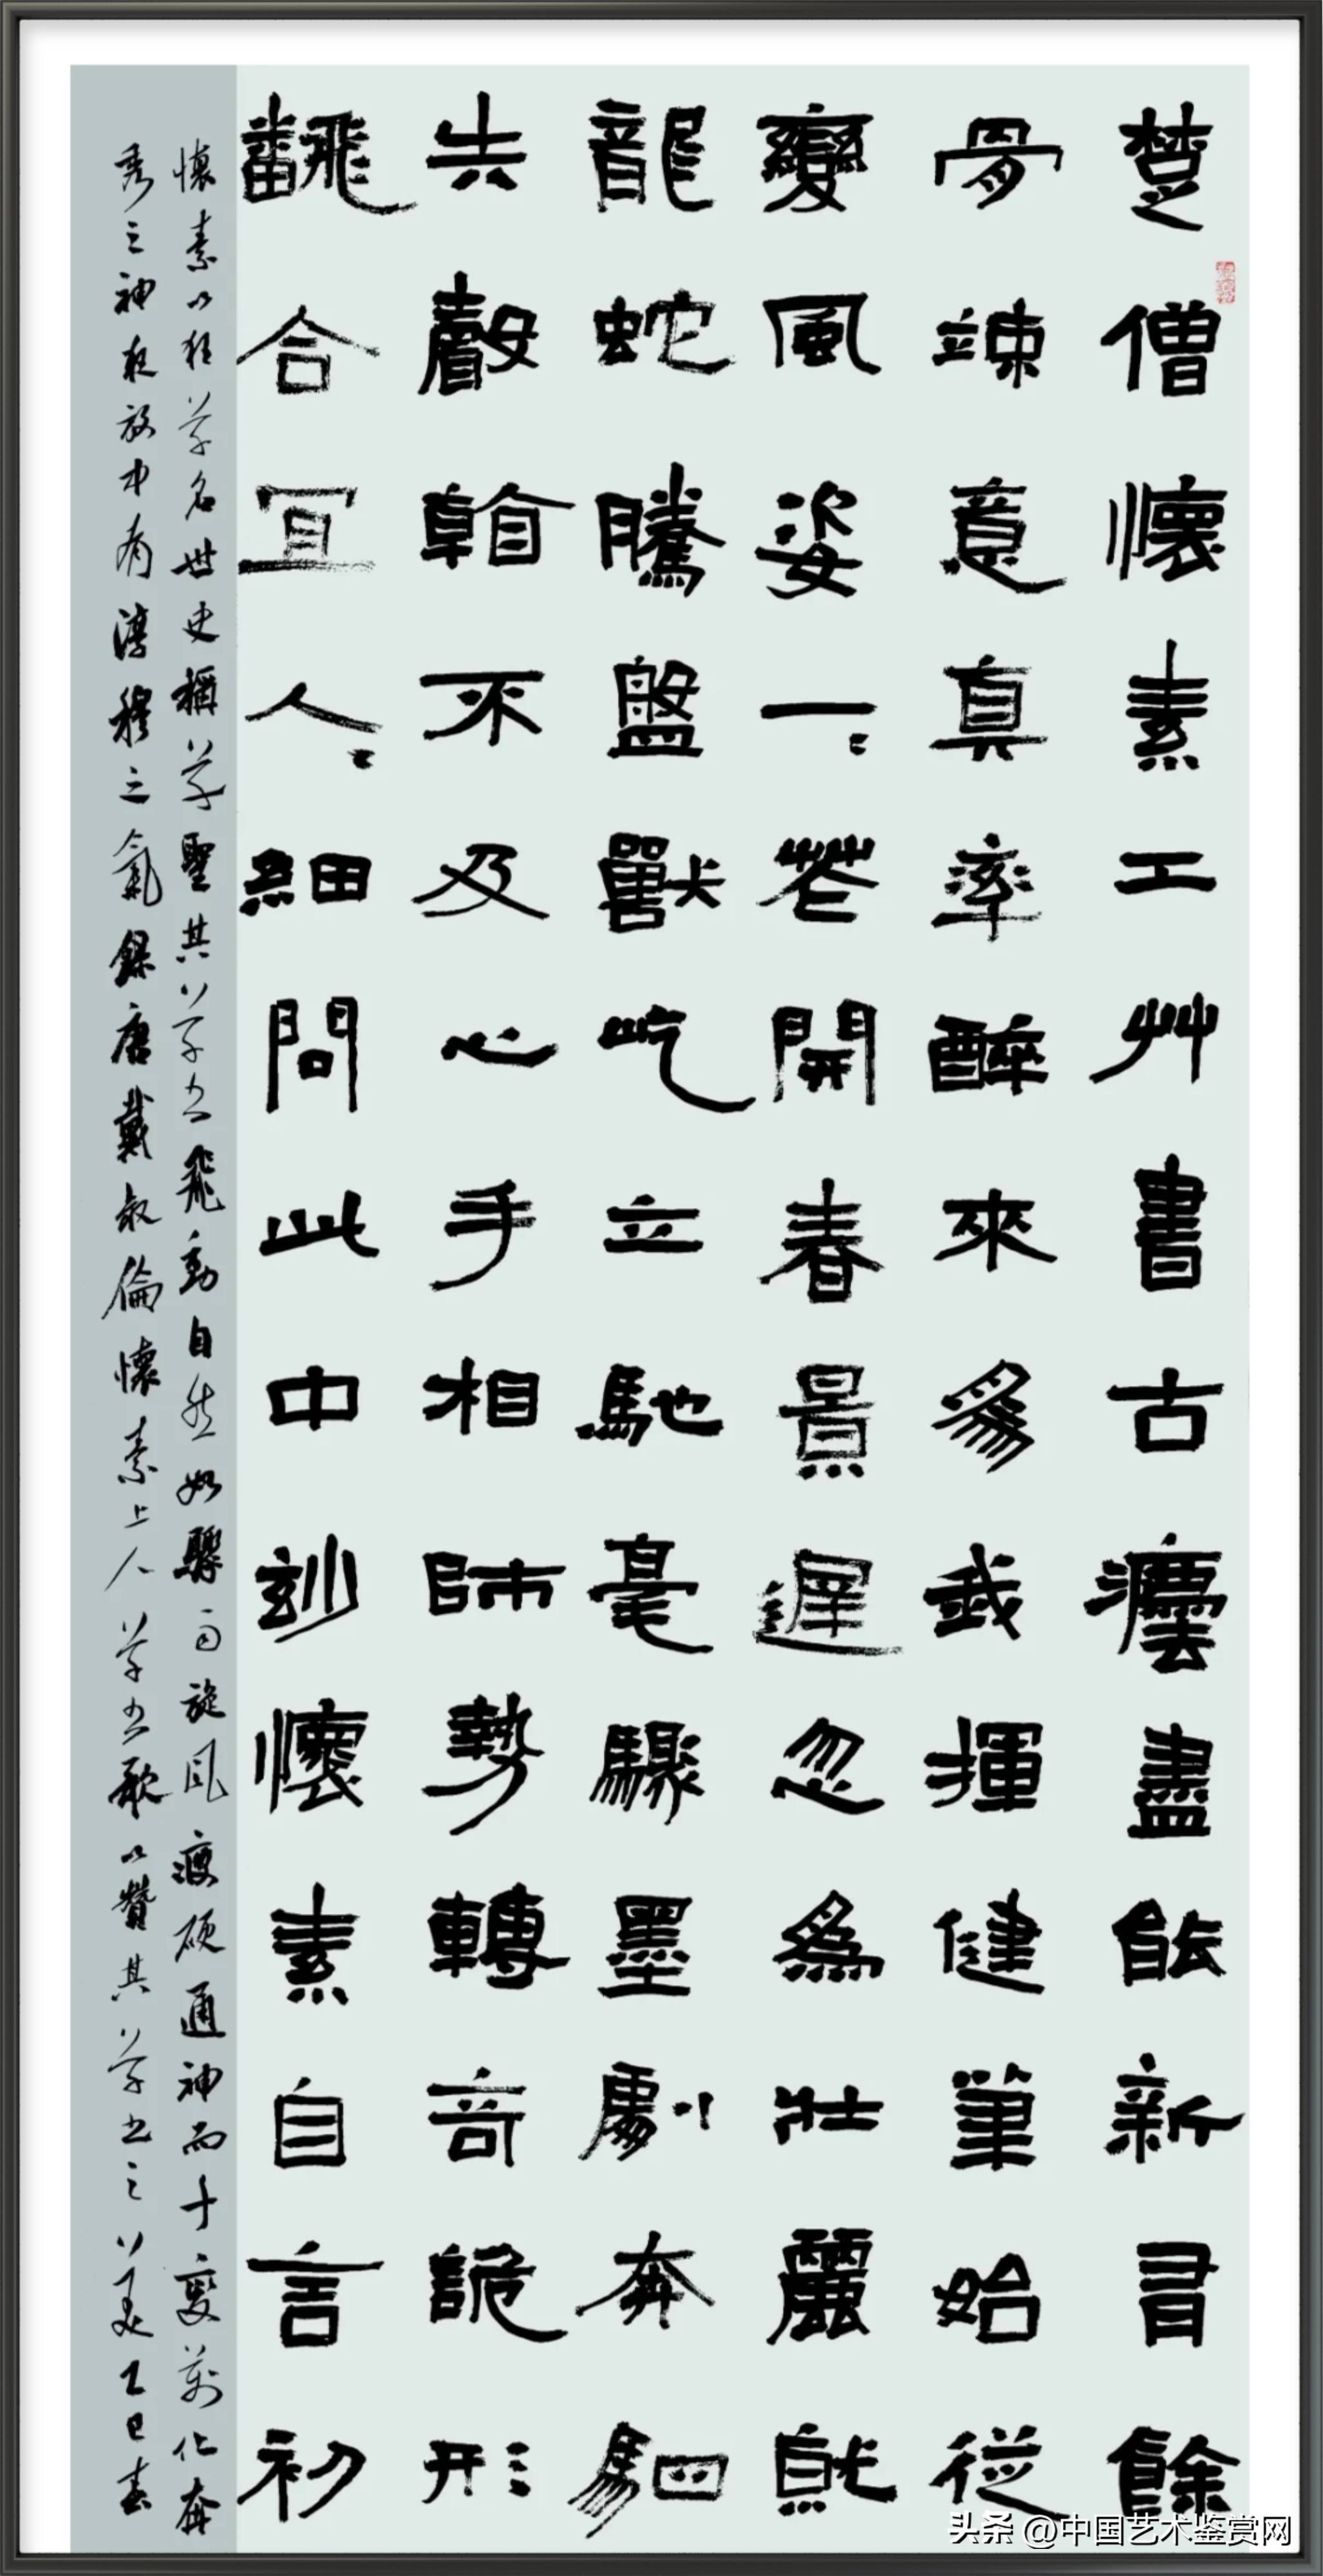 楚僧懷素工艸書古灋盡能新有餘
骨竦意真率醉來為我揮健筆始從
變風姿一〻花開春景遲忽為壯麗就
龍蛇騰盤獸屹立馳毫驟墨劇奔駟
失聲看不及心手相師勢轉奇詭形
翻合宜人〻細問此中妙懷素自言初
懷素以狂草名世史稱草聖其草書飛動自然如驟雨旋風瘦硬通神而千變萬化奔
秀之神放中有淳穆之氣錄唐戴叔倫懷素上人草書歌以贊其草書之美乙巳春
头条 @中国艺术鉴赏网